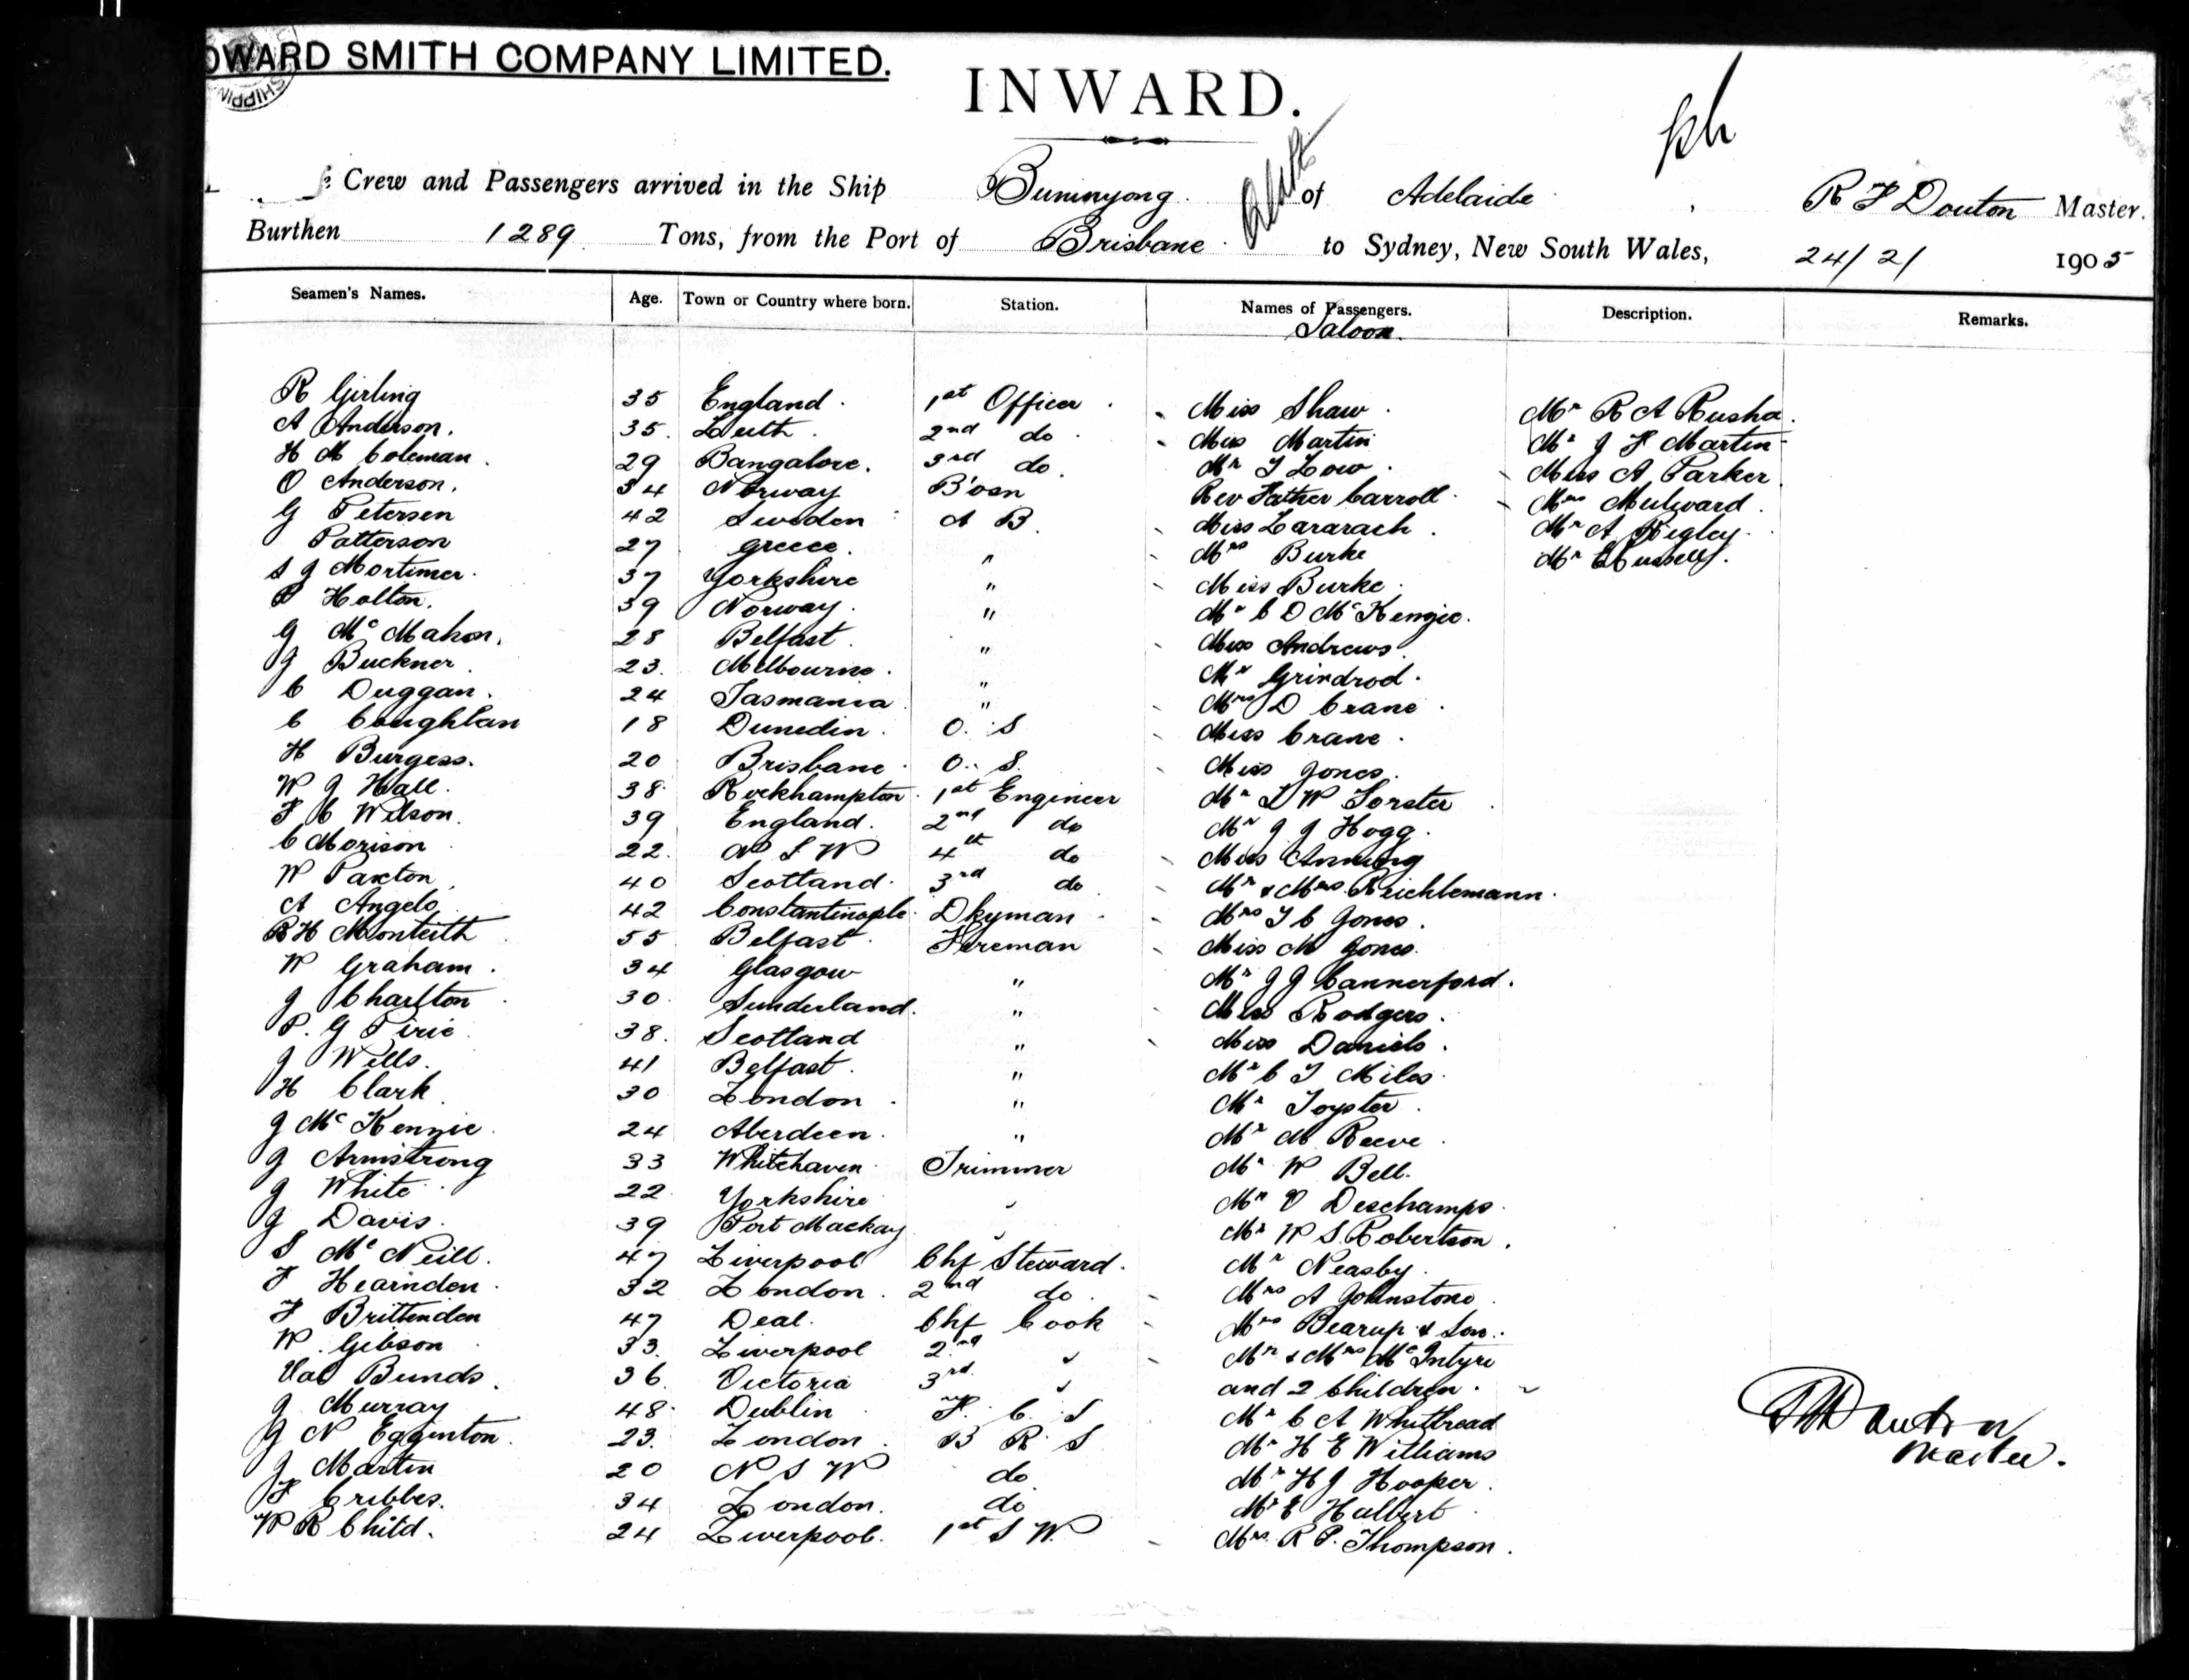 OWARD SMITH COMPANY LIMITED.
SHIPPIN
INWARD.
Crew and Passengers arrived in the Ship Buninyong of Adelaide, R F Douton Master.
Burthen 1289 Tons, from the Port of Brisbane to Sydney, New South Wales, 24/2/ 1905
Seamen's Names. Age. Town or Country where born. Station. Names of Passengers. Description. Remarks.
Saloon.
R Girling 35 England. 1st Officer. Miss Shaw. Mr R A Rusha.
A Anderson. 35. Leith. 2nd do Miss Martin Mr J F Martin
H M Coleman. 29 Bangalore. 3rd do. Mr T Low. Miss A Parker
O Anderson. 34 Norway B'osn Rev Father Carroll Mrs Mulward.
G Petersen 42 Sweden A B. Miss Lararach. Mr A Higley.
Patterson 27 Greece. " Mrs Burke Mr E
S J Mortimer. 37 Yorkshire " Miss Burke.
P Holton. 39 Norway. " Mr C D McKenzie.
G McMahon. 28 Belfast. " Miss Andrews.
J Buckner. 23. Melbourne. " Mr Grindrod.
C Duggan. 24 Tasmania. " Mrs D Crane.
C Coughlan 18 Dunedin. O. S Miss Crane.
H Burgess. 20 Brisbane. O. S. Miss Jones.
W J Hall. 38 Rockhampton. 1st Engineer Mr L W Forster
F C Wilson. 39 England. 2nd do Mr J J Hogg.
C Morison 22. N S W 4th do Miss Anning
W Paxton 40 Scotland. 3rd do Mr & Mrs Reichlemann.
A Angelo 42 Constantinople. Dkyman Mrs T C Jones.
R H Monteith 55 Belfast. Fireman Miss M Jones.
W Graham. 34 Glasgow " Mr J J Cannerford.
J Charlton 30 Sunderland. " Miss Rodgers.
P. G Pirie 38. Scotland " Miss Daniels.
J Wells. 41 Belfast. " Mr C T Miles.
H Clark 30 London. " Mr Toyster.
J McKenzie. 24 Aberdeen. " Mr M Reeve.
J Armstrong 33 Whitehaven Trimmer Mr W Bell.
J White 22 Yorkshire " Mr V Deschamps.
J Davis. 39 Port Mackay " Mr W S Robertson.
S McNeill. 47 Liverpool Chf Steward. Mr Neasby.
F Hearnden 32 London. 2nd do. Mrs A Johnstone.
F Brittenden 47 Deal. Chf Cook Mrs Bearup & Son.
W. Gibson 33. Liverpool 2nd " Mr & Mrs McIntyre
Val Bunds. 36 Victoria 3rd " and 2 Children.
J Murray 48 Dublin F. C. S Mr C A Whitbread
G N Egginton. 23. London. B R S Mr H E Williams
J Martin 20 N S W do Mr H J Hooper.
F Cribbes. 34 London. do Mr E Halbert
W R Child. 24 Liverpool. 1st S W. Mrs. R P. Thompson.
R F Douton
Master.